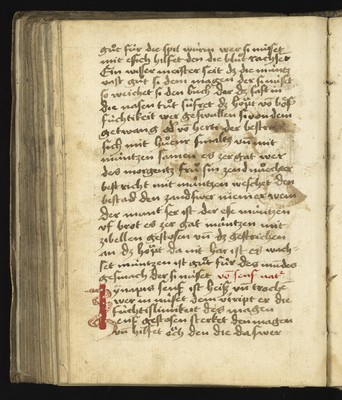 gůt für die spil wurm wer si nüsset
mit essich hilfet den die blůt rachset
Ein wiser meister seit dz die müntz
vast gůt si dem magen der si nüset
so weichet si den buch der dz saft in
die nasen tůt süfret dz höpt vo böser
füchtikeit wer geswullen si von dem
getwang od vo herti der bestrich
sich mit hůenr smaltz vn mit
müntzen samen es zergat wer
des morgentz frů sin zend nůchter
bestricht mit müntzen weschet den
bestad den zandswer niemer wem
der mont ser ist der esse müntzen
vf brot es zer gat müntzen mit
zibellen gestosen vn dz gestrichen
an dz höpt da nit har ist es wach-
set müntzen ist gůt für des mundes
gesmach der si nüset vo senf nat
Synapus senf ist heiß vn trochē
wer in nüset dem vtript er die
füchti slimikeit des magen
senf gestosen sterket den magen
vn hilfet öch den die da swer